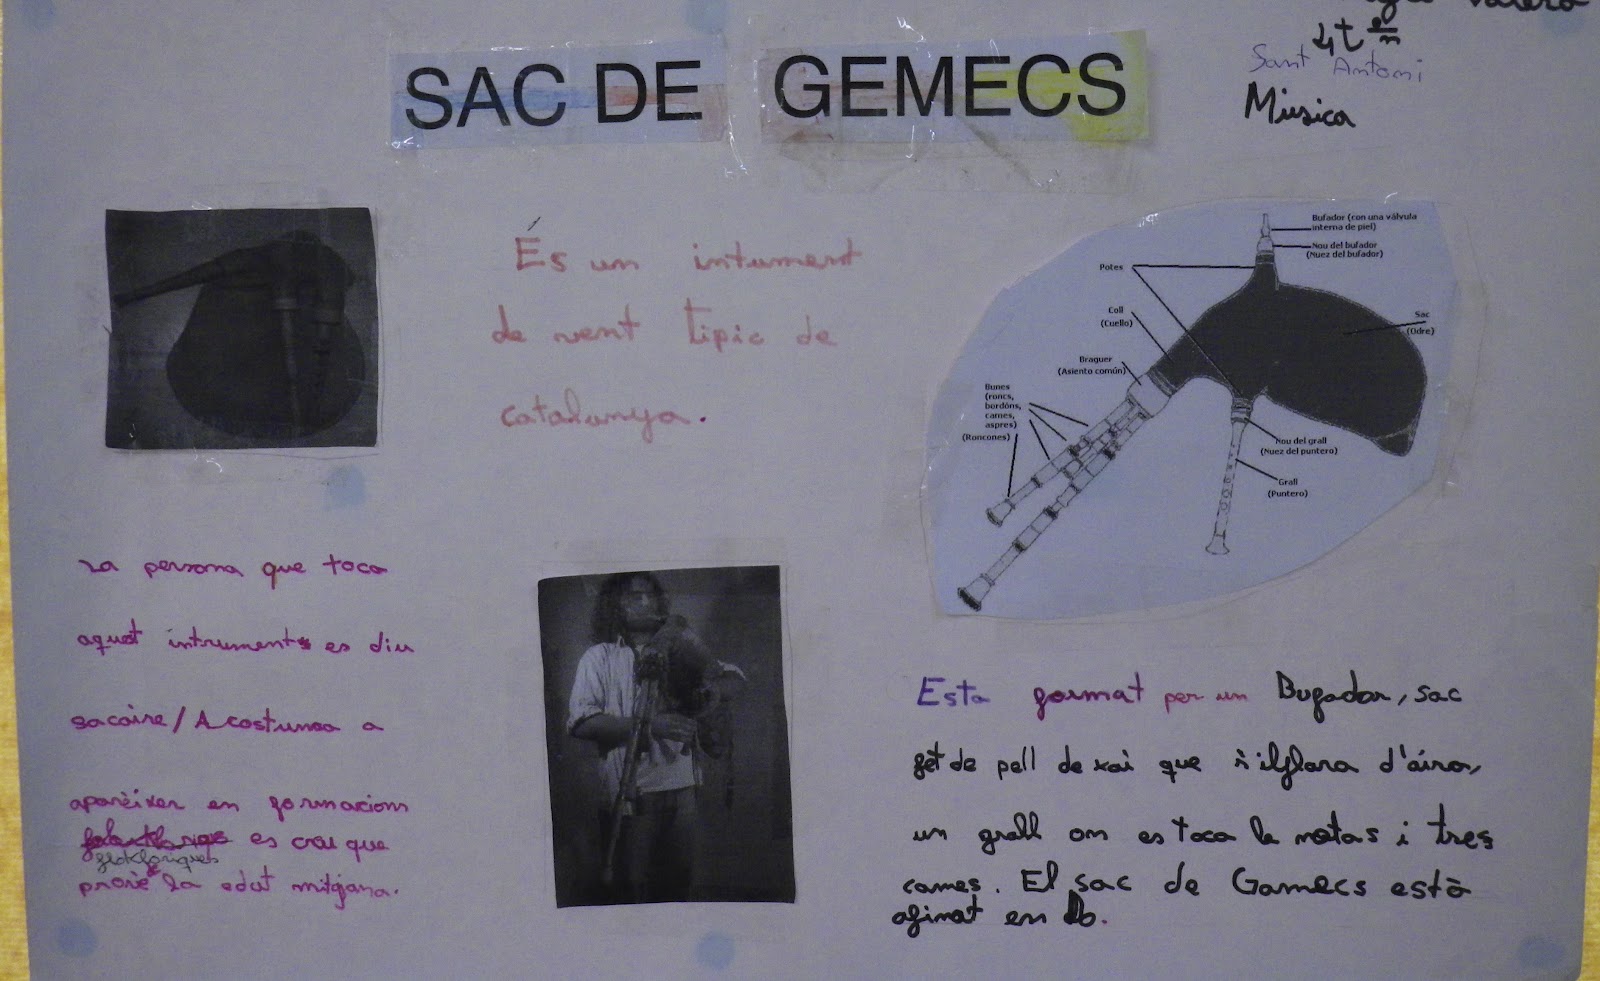 Valero
4t
Sant Antoni
Música
SAC DE GEMECS
És un intument
de vent tipic de
catalunya.
Bufador (con una válvula
interna de piel)
Nou del bufador
(Nuez del bufador)
Potes
Coll
(Cuello)
Sac
(Odre)
Braguer
(Asiento común)
Bunes
(roncs,
bordóns,
cames,
aspres)
(Roncones)
Nou del grall
(Nuez del puntero)
Grall
(Puntero)
La persona que toca
aquet intruments es diu
sacaire/Acostunea a
aparèixer en formacions
es crau que
folkloriques
prové la edat mitjana.
Esta format per un Bufador, sac
fet de pell de xai que d'áira,
un grall on es toca le notas i tres
cames. El sac de Gamecs està
afinat en do.